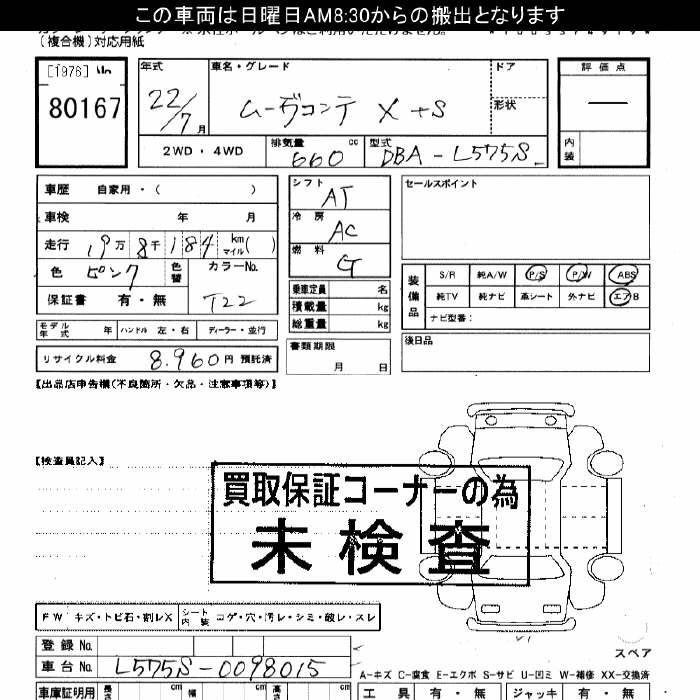 この車両は日曜日AM8:30からの搬出となります
(複合機)対応用紙
[1976]
80167
年式
22/7月
車名・グレード
ムーヴコンテ X +S
ドア
形状
評価点
—
内装
2WD・4WD
排気量 660 cc
型式 DBA-L575S
車歴 自家用・( )
車検 年 月
走行 19万8千184 km マイル( )
色 ピンク
色替
カラーNo. T22
保証書 有・無
シフト AT
冷房 AC
燃料 G
乗車定員 名
積載量 kg
総重量 kg
セールスポイント
装備品
S/R 純A/W P/S P/W ABS
純TV 純ナビ 革シート 外ナビ エアB
ナビ型番:
モデル年式 年 ハンドル 左・右 ディーラー・並行
リサイクル料金 8,960円 預託済
書類期限
月 日
後日品
【出品店申告欄(不良箇所・欠品・注意事項等)】
【検査員記入】
買取保証コーナーの為
未検査
FW キズ・トビ石・割レX
シート内装 コゲ・穴・汚レ・シミ・破レ・スレ
登録No.
車台No. L575S-0098015
スペア
A-キズ C-腐食 E-エクボ S-サビ U-凹ミ W-補修 XX-交換済
車庫証明用 長さ cm 幅 cm 高さ cm
工具 有・無 ジャッキ 有・無